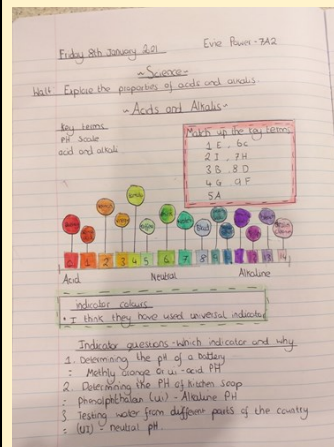 Friday 8th January 201
Evie Power - 7A2
~ Science ~
Walt: Explore the properties of acids and alkalis.
~ Acids and Alkalis ~
Key terms
PH Scale
acid and alkali
Match up the key terms
1 E . 6C
2 I . 7H
3 B . 8D
4 G . 9F
5A
0 1 2 3 4 5 6 7 8
13 14
Acid Neutral Alkaline
indicator colours
• I think they have used universal indicator
Indicator questions - Which indicator and why
1. Determining the pH of a battery
= Methly orange or ui - acid PH
2. Determining the PH of kitchen soap
= Phenolphthalein (ui) - Alkaline PH
3. Testing water from different parts of the country
= (UI) = neutral pH.